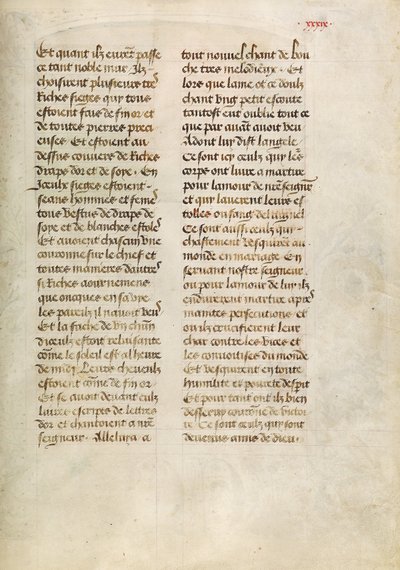 xxxix
Et quant ilz eurent passe
ce tant noble mur Ilz
choisirent plusieurs tres
Riches sieges qui tous
estoient fais de fin or et
de toutes pierres preci
euses Et estoient au
dessus couvers de Riches
draps dor et de soye En
Iceulx sieges estoient
seans hommes et femes
tous vestus de draps de
soye et de blanches estoles
Et avoient chascun une
couronne sur le chief et
toutes manieres dautres
si Riches aournemens
que oncques en sa vie
les pareilz il navoit veu
Et la face de un chun
diceulx estoit reluisante
comme le soleil est al heure
de midi Leurs cheveulx
estoient come de fin or
Et se avoit devant eulx
livres escrips de lettres
dor et chantoient a nre
seigneur Alleluya a
tout nouvel chant de bou
che tres melodieux Et
lors que lame et ce doulx
chant ung petit escoute
tantost eut oublie tout ce
que par avant avoit veu
Adont luy dist langele
Ce sont icy ceulx qui les
corps ont livre a martire
pour lamour de nre seignr
et qui laverent leurs es
tolles ou sang de laignel
Ce sont aussi ceulx qui
chastement vesquirent au
monde en mariage En
servant nostre seigneur
ou pour lamour de luy ilz
endurerent martire apres
maintes persecutions et
ou ilz crucifierent leur
char contre les vices et
les convoitises du monde
Et vesquirent en toute
humilite et povrete desperit
Et pour tant ont ilz bien
desservy couronne de victoi
re Ce sont ceulx qui sont
devenus amis de dieu